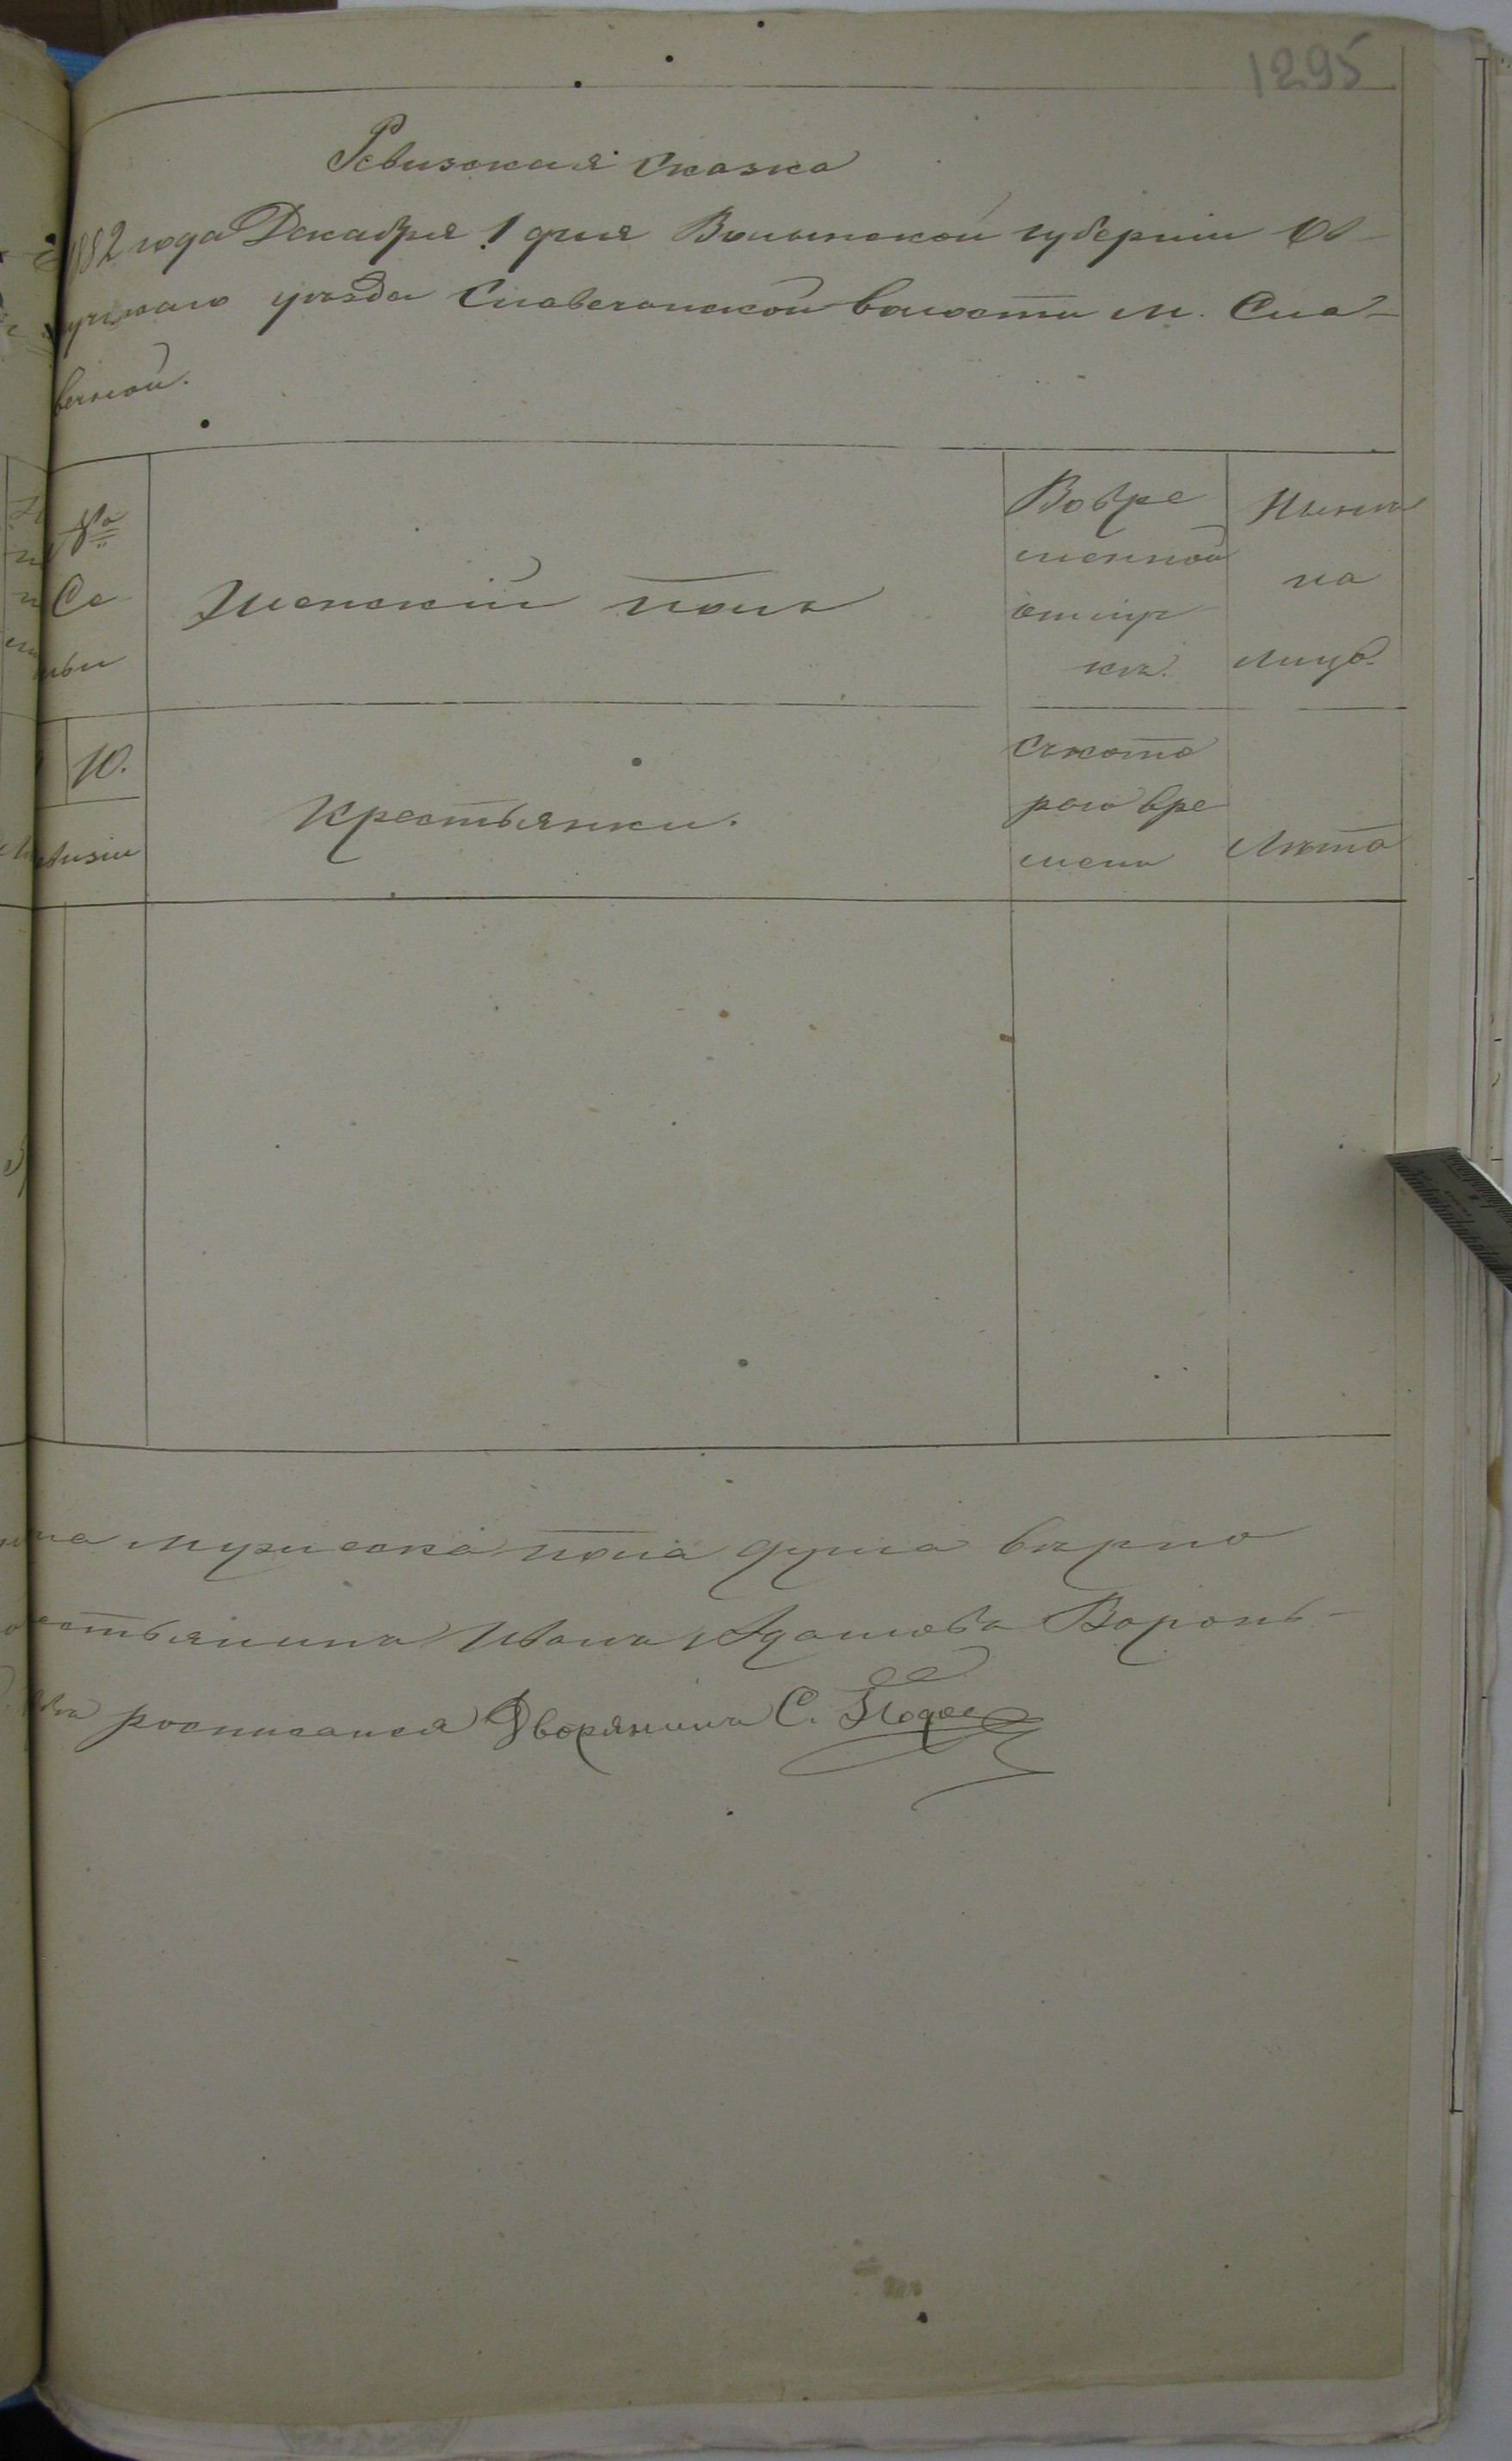 1295
Ревизская сказка
1882 года Декабря 1 дня Волынской губерніи Ов-
ручскаго уѣзда Словечанской волости м. Сло-
вечной.
№
Се
мьи
Женскій полъ
Во вре
менной
отлуч
кѣ.
Нынѣ
на
лицо.
10.
визіи
Крестьянки.
Съ кото
раго вре
мени
Лѣта
на мужеска пола душа вѣрно
естьянина Ивана Адамова Воронь-
росписался Дворянинъ С.